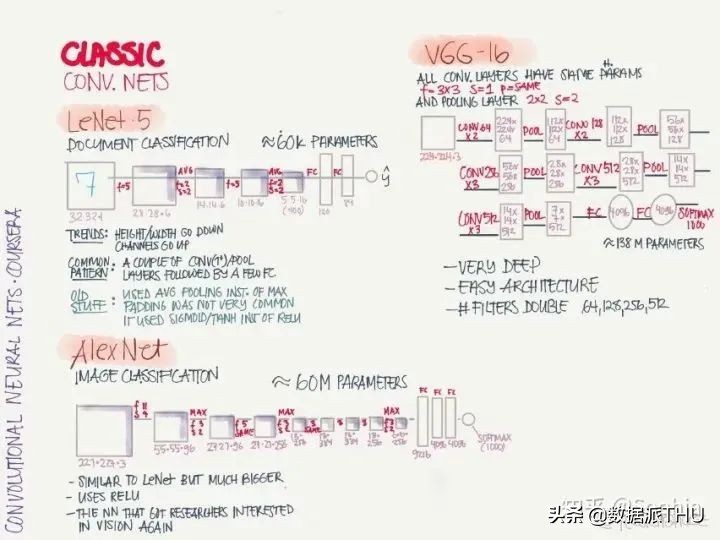 CLASSIC
CONV. NETS
LeNet-5
DOCUMENT CLASSIFICATION
≈60K PARAMETERS
7
f=5
AVG
f=2
S=2
f=5
AVG
f=2
S=2
FC
FC
ŷ
32·32·1
28·28·6
14·14·6
10·10·16
5·5·16
(400)
120
84
TRENDS: HEIGHT/WIDTH GO DOWN
CHANNELS GO UP
COMMON PATTERN: A COUPLE OF CONV(1+)/POOL
LAYERS FOLLOWED BY A FEW FC
OLD STUFF: USED AVG POOLING INST. OF MAX
PADDING WAS NOT VERY COMMON
IT USED SIGMOID/TANH INST OF RELU
AlexNet
IMAGE CLASSIFICATION
≈ 60M PARAMETERS
f=11
S=4
MAX
f=3
S=2
f=5
SAME
MAX
f=3
S=2
MAX
FC
FC
FC
227·227·3
55·55·96
27·27·96
27·27·256
9216
4096
4096
SOFTMAX
(1000)
- SIMILAR TO LeNet BUT MUCH BIGGER
- USES RELU
- THE NN THAT GOT RESEARCHERS INTERESTED
IN VISION AGAIN
VGG-16
ALL CONV. LAYERS HAVE SAME PARAMS
f=3X3 S=1 P=SAME
AND POOLING LAYER 2X2 S=2
224·224·3
CONV 64
X2
224×
224×
64
POOL
112×
112×
64
CONV 128
X2
112×
112×
128
POOL
56×
56×
128
CONV 256
X3
56×
56×
256
POOL
28×
28×
256
CONV 512
X3
28×
28×
512
POOL
14×
14×
512
CONV 512
X3
14×
14×
512
POOL
7×
7×
512
FC
4096
FC
4096
SOFTMAX
1000
≈138 M PARAMETERS
- VERY DEEP
- EASY ARCHITECTURE
- # FILTERS DOUBLE 64,128,256,512
CONVOLUTIONAL NEURAL NETS · COURSERA
头条 @数据派THU